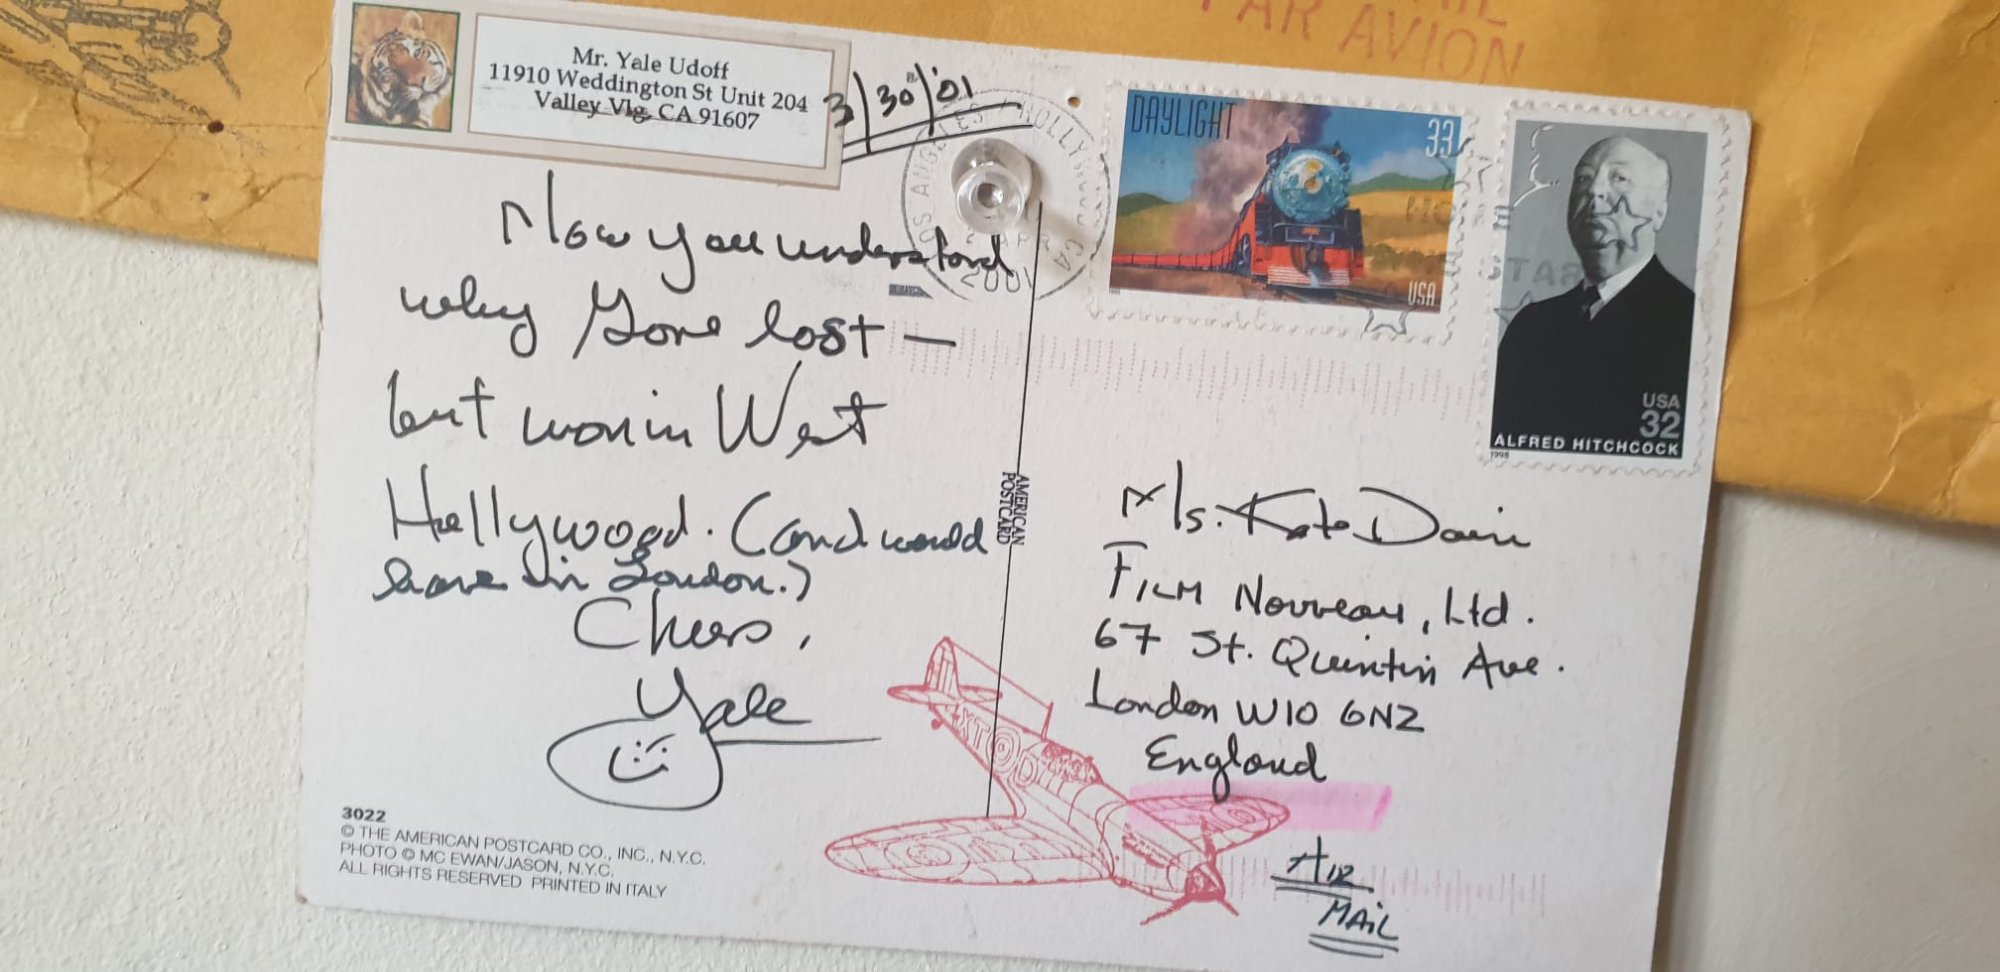 PAR AVION
Mr. Yale Udoff
11910 Weddington St Unit 204
Valley Vlg, CA 91607
3/30/'01
LOS ANGELES / HOLLYWOOD CA
APR
2001
DAYLIGHT
33
USA
STAR
USA
32
ALFRED HITCHCOCK
1998
Now you understand
why Gore lost —
but won in West
Hollywood. (and would
have in London.)
Cheers,
Yale
AMERICAN
POSTCARD
Ms. Kate
FILM Nouveau, Ltd.
67 St. Quintin Ave.
London W10 6NZ
England
AIR
MAIL
XT D
3022
© THE AMERICAN POSTCARD CO., INC., N.Y.C.
PHOTO © MC EWAN/JASON, N.Y.C.
ALL RIGHTS RESERVED PRINTED IN ITALY